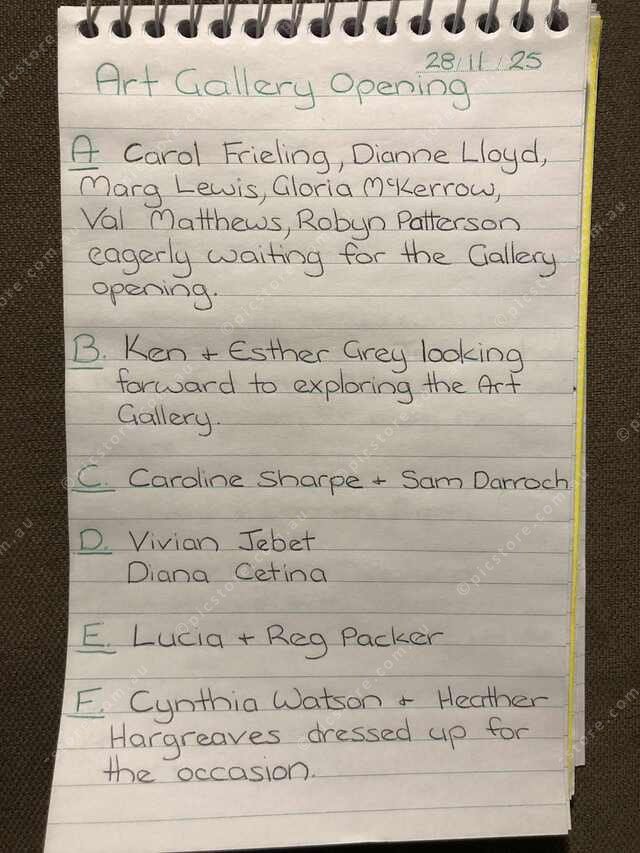 28/11/25
Art Gallery Opening
A Carol Frieling, Dianne Lloyd,
Marg Lewis, Gloria McKerrow,
Val Matthews, Robyn Patterson
eagerly waiting for the Gallery
opening.
B. Ken + Esther Grey looking
forward to exploring the Art
Gallery.
C. Caroline Sharpe + Sam Darroch
D. Vivian Jebet
Diana Cetina
E. Lucia + Reg Packer
F. Cynthia Watson + Heather
Hargreaves dressed up for
the occasion.
©picstore.com.au